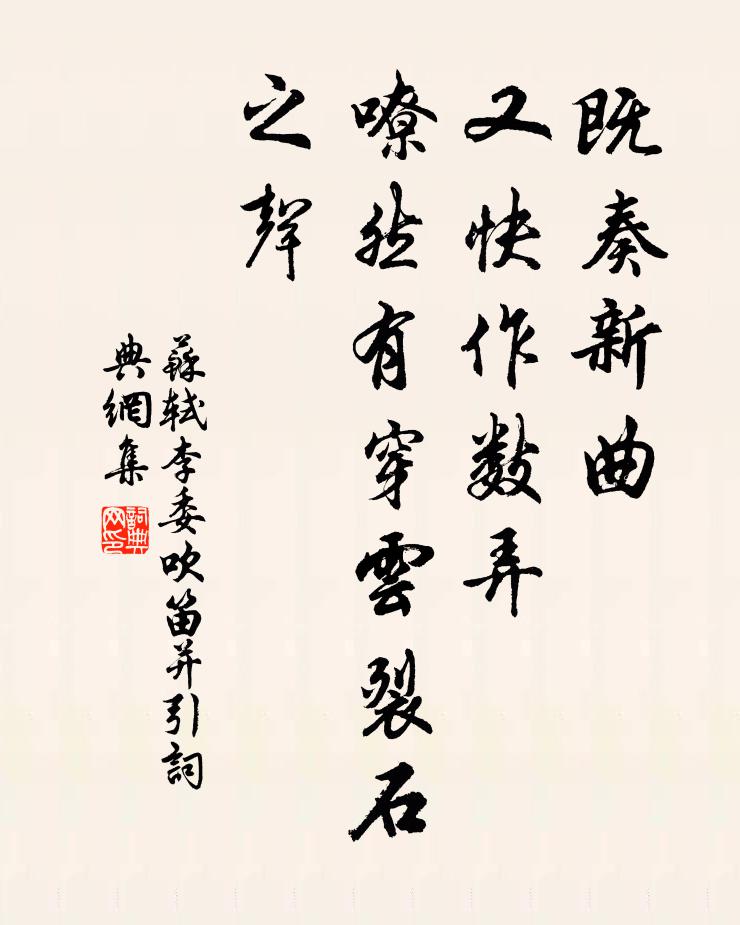 既奏新曲
又快作数弄
嘹然有穿雲裂石
之聲
蘇軾李委吹笛并引詞
典網集
詞典网印